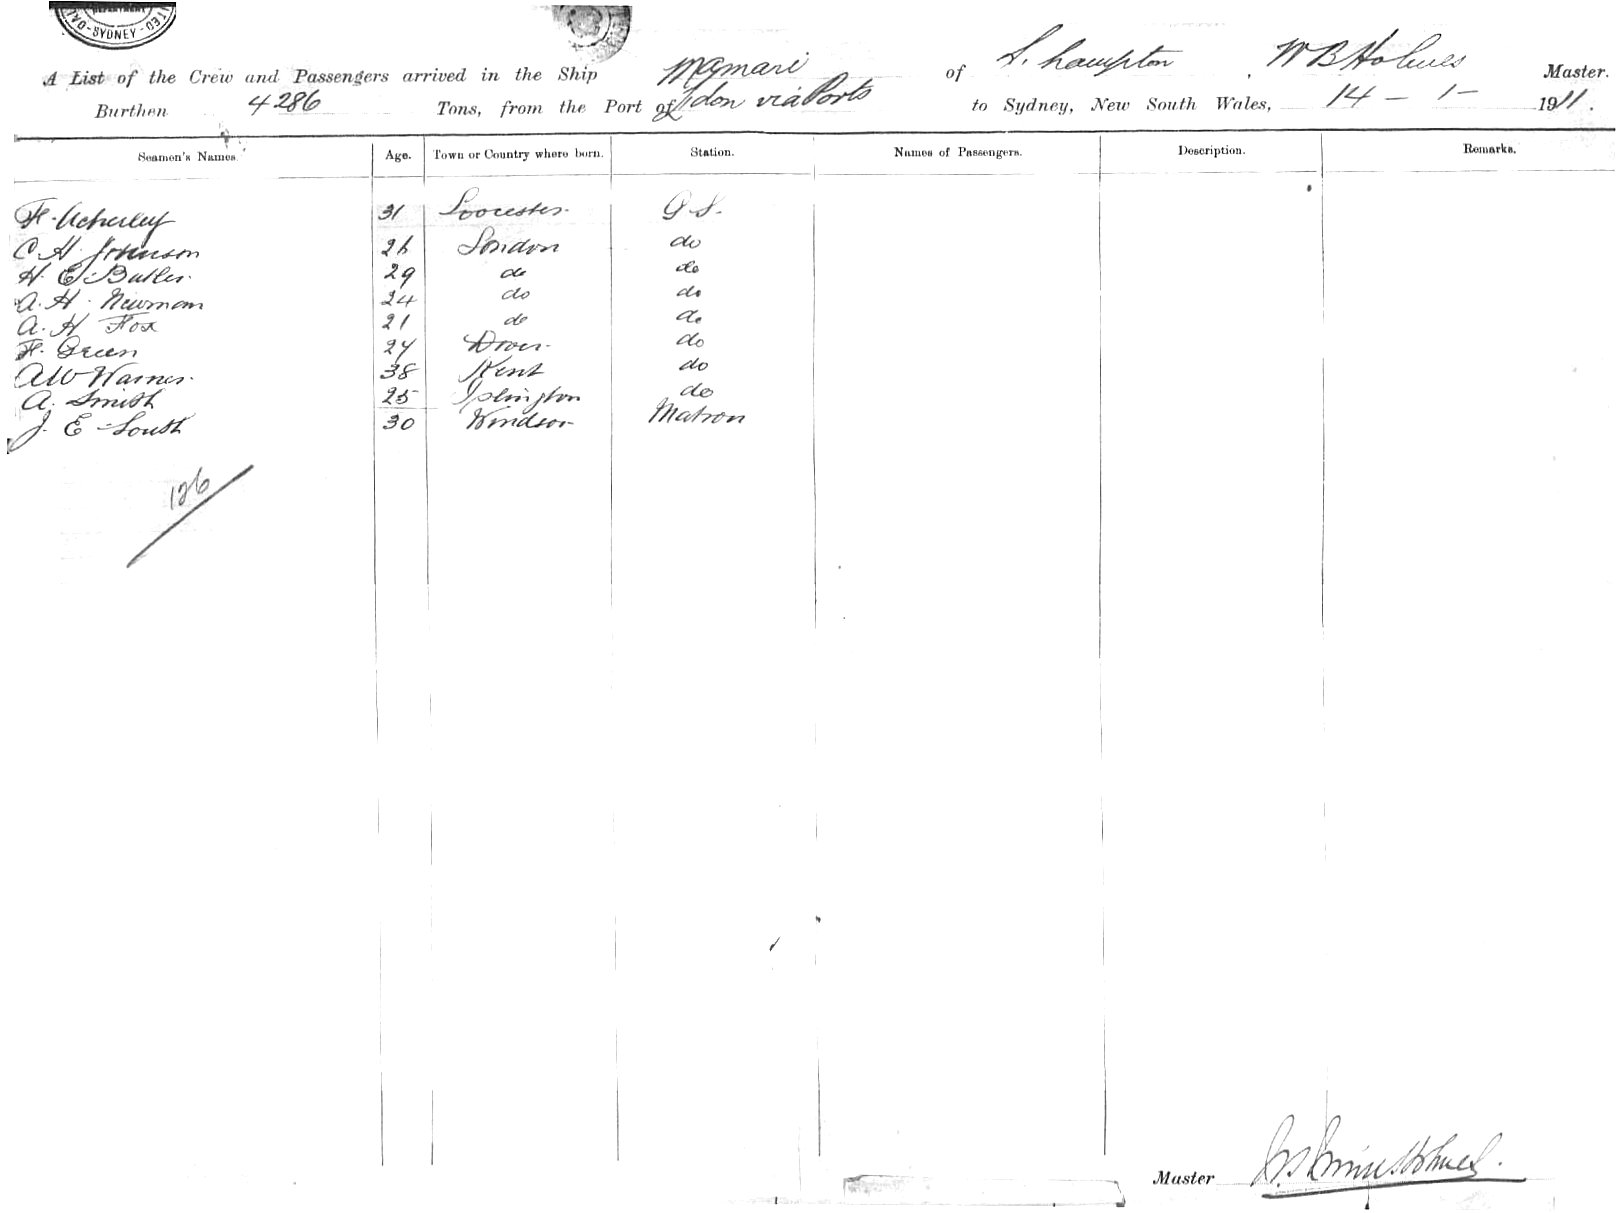 DEPARTMENT
SYDNEY
A List of the Crew and Passengers arrived in the Ship Mamari of S. hampton, W B Holmes Master.
Burthen 4286 Tons, from the Port of Ldon via Ports to Sydney, New South Wales, 14 - 1 - 1911.
Seamen's Names. Age. Town or Country where born. Station. Names of Passengers. Description. Remarks.
F. Acherley 31 G. S.
C H Johnson 26 London do
H. E. Butler 29 do do
A. H. Newman 24 do do
A. H Fox 21 do do
F. Green 24 Dover do
A W Warner 38 Kent do
A. Smith 25 Islington do
J. E South 30 Windsor Matron
126
Master